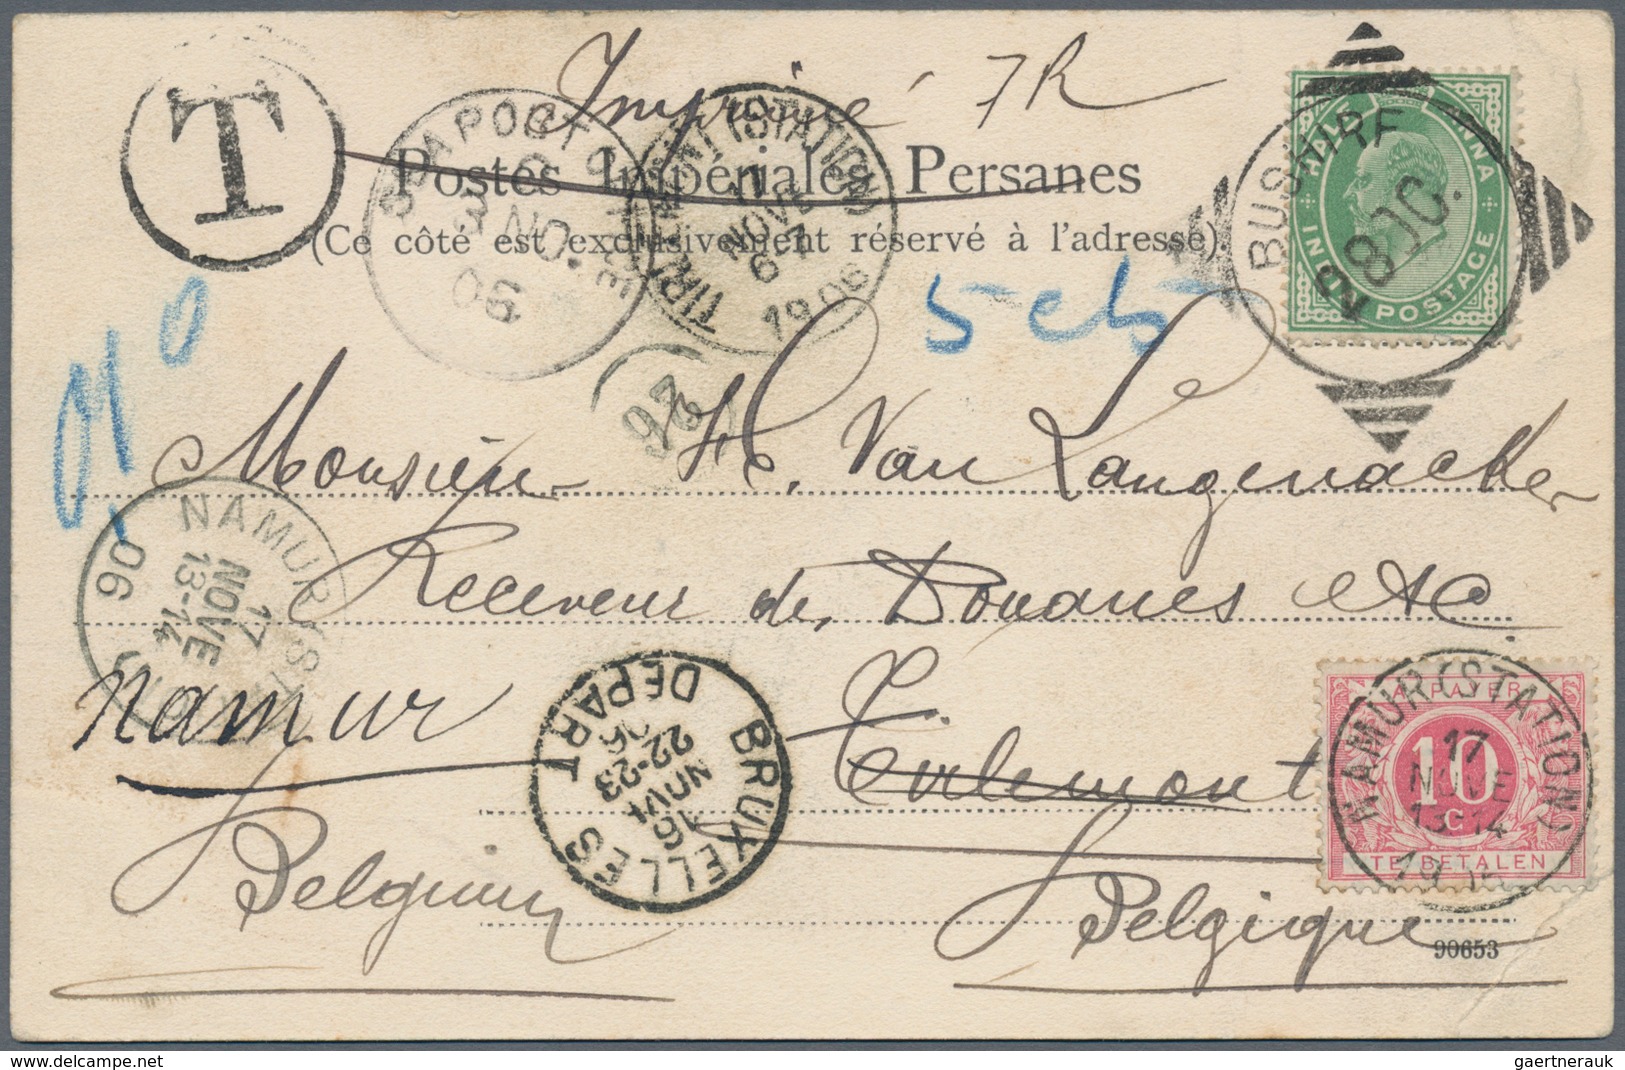 Imprimé 7R
T
Postes Impériales Persanes
(Ce côté est exclusivement réservé à l'adresse).
SEA POST OFFICE
3 NO. 06
TIRLEMONT (STATION)
17 NOVE 6-7
1906
BUSHIRE
28 OC.
HALF ANNA
INDIA POSTAGE
5 cts
Monsieur H. Van Langenacker
Receveur des Douanes etc
NAMUR (STATION)
17 NOVE 13-14
06
Namur
Tirlemont
BRUXELLES
DEPART
16 NOVE
22-23
06
A PAYER
10
C
TE BETALEN
NAMUR (STATION)
17 NOVE 13-14
Belgium
Belgique
90653
gaertnerauk